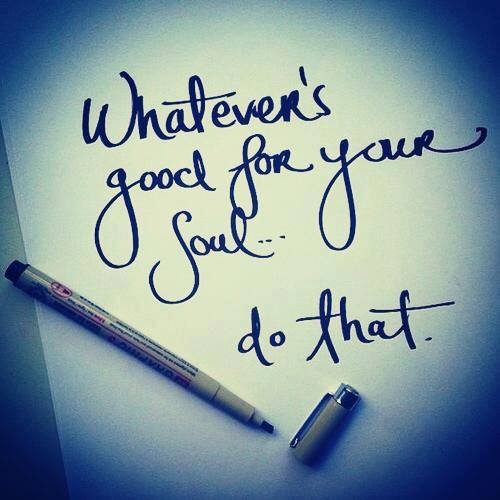 Whatever's
good for your
Soul...
do that.